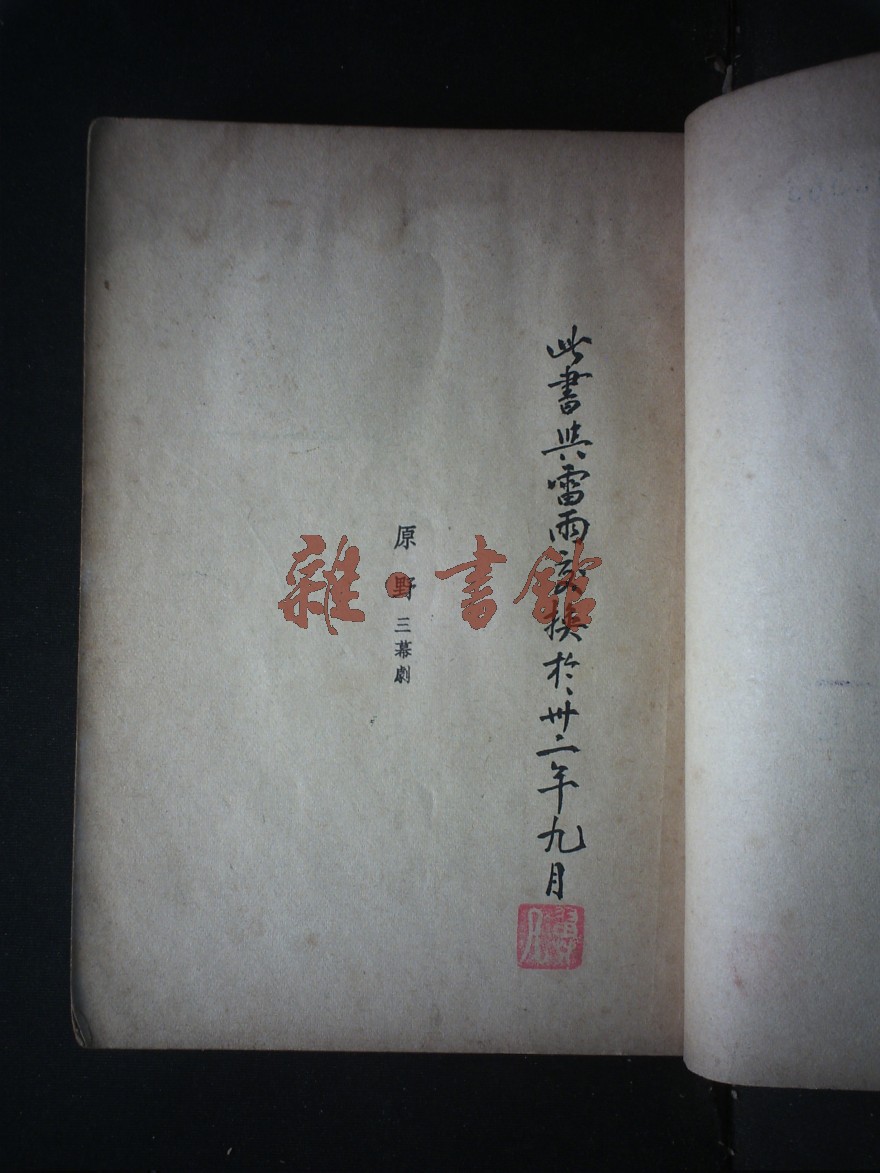 此書與雷雨交換於卅二年九月
原野 三幕劇
雜·書館